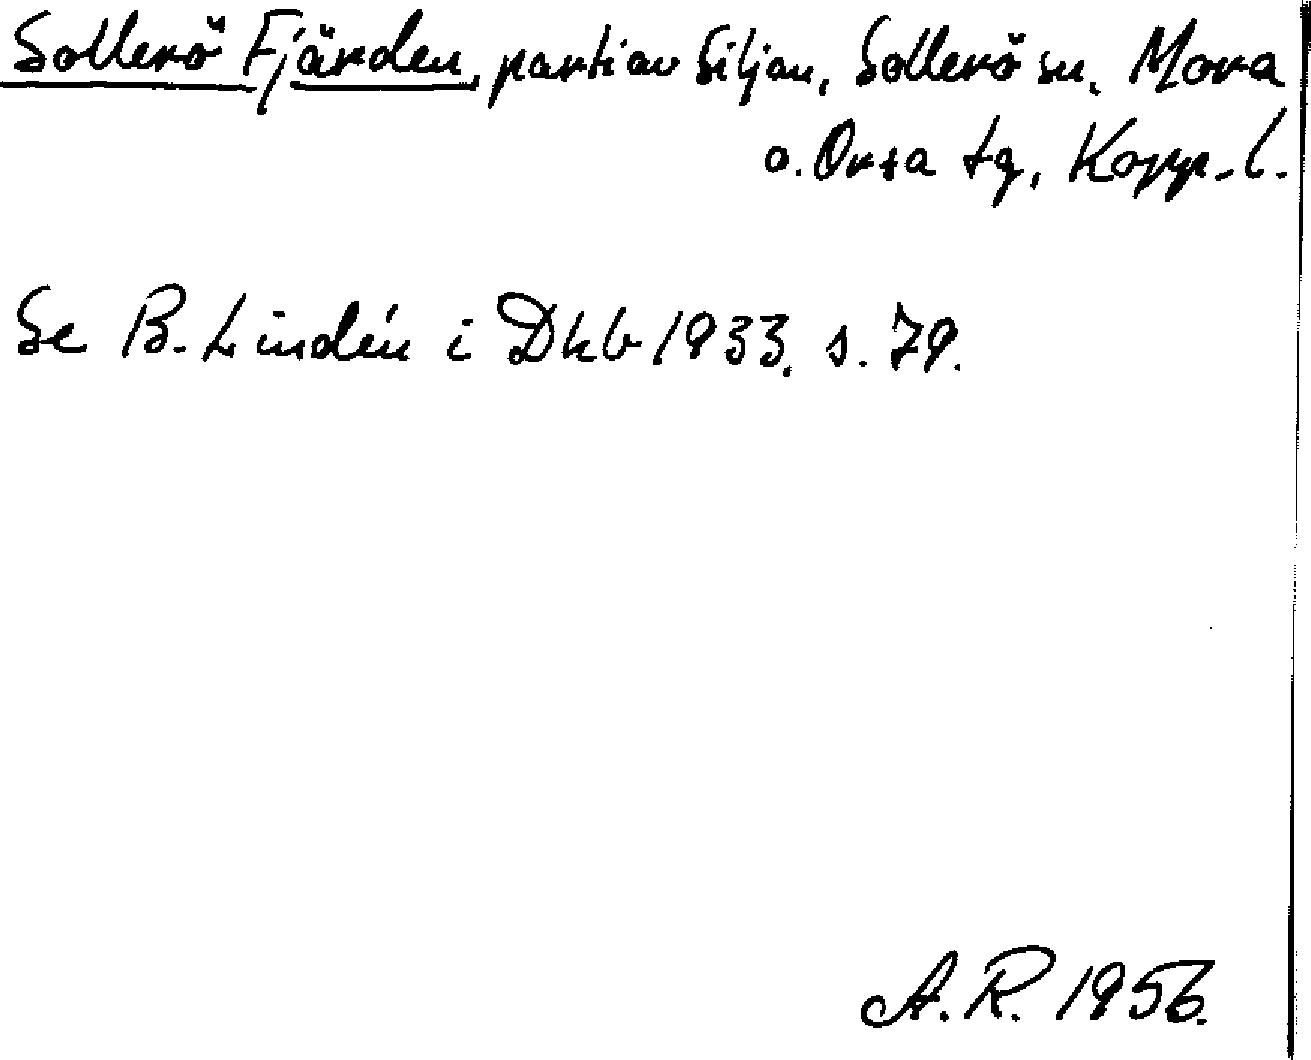 Sollerö Fjärden, parti av Siljan, Sollerö sn, Mora
o. Orsa tg, Kopp. l.
Se B. Lindén i Dkb 1933, s. 79.
A. R. 1956.